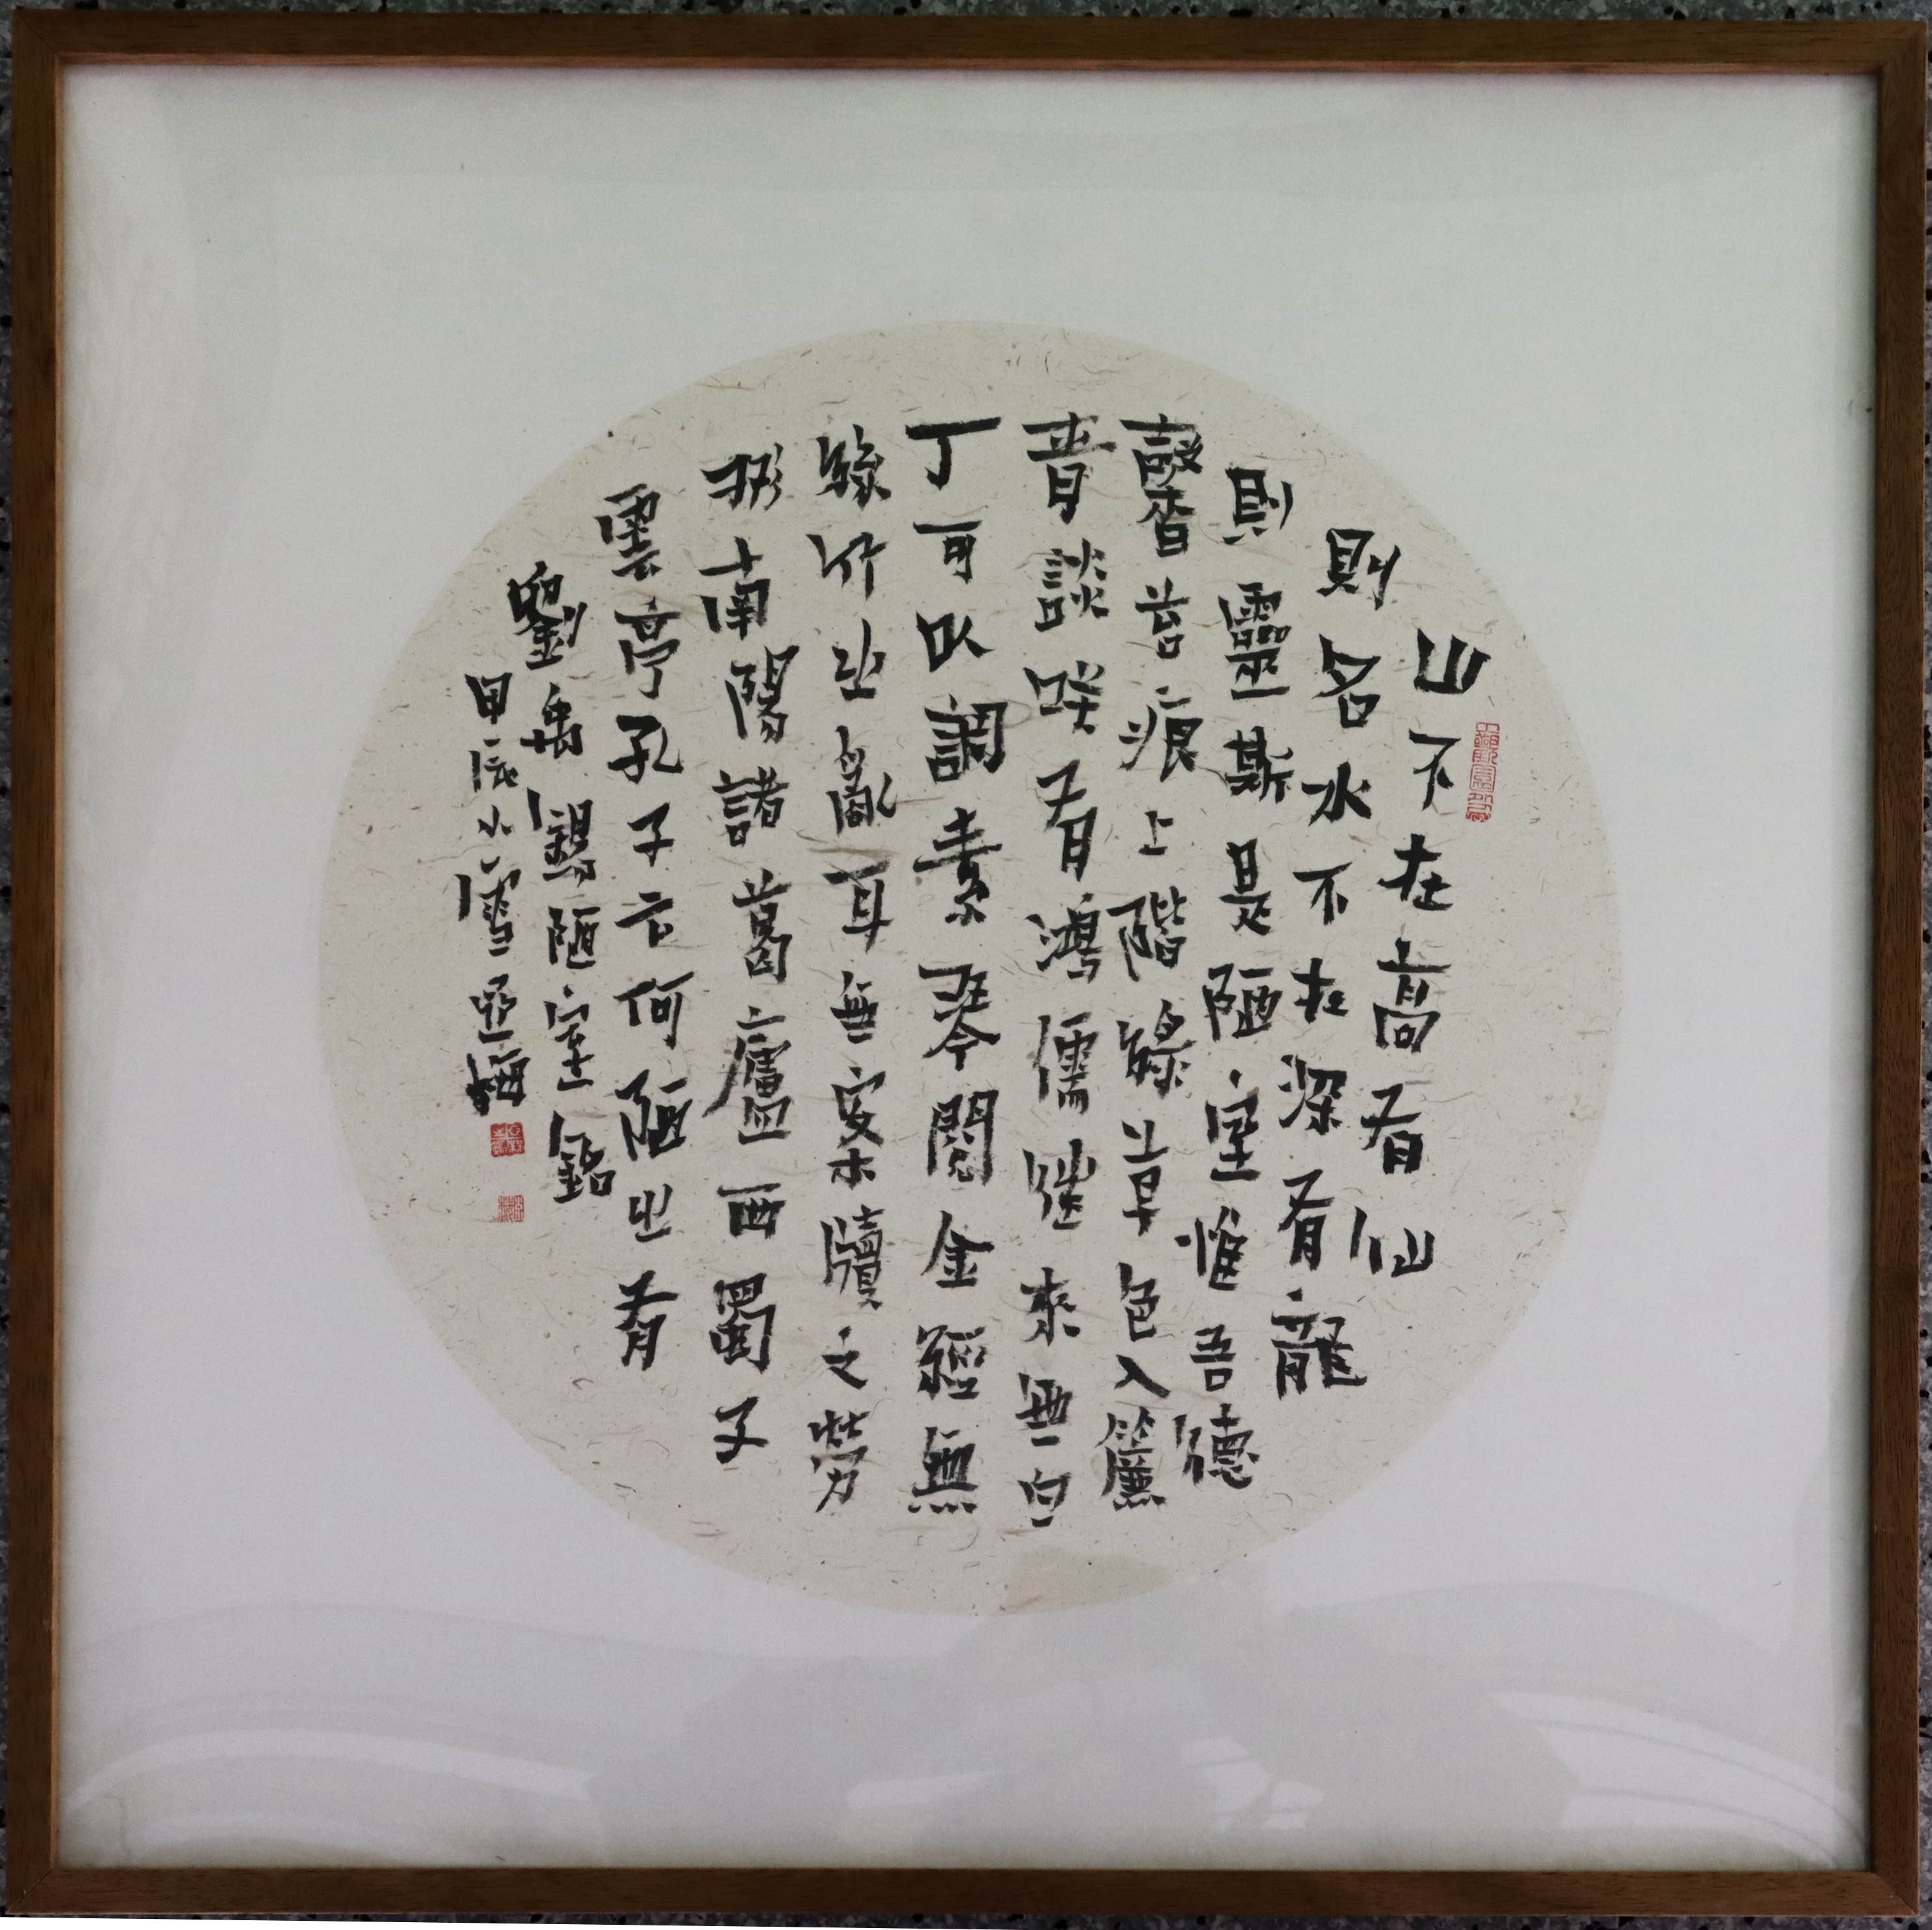 山不在高有仙
則名水不在深有龍
則靈斯是陋室惟吾德
馨苔痕上階綠草色入簾
青談笑有鴻儒往來無白
丁可以調素琴閱金經無
絲竹之亂耳無案牘之勞
形南陽諸葛廬西蜀子
雲亭孔子云何陋之有
劉禹錫陋室銘
甲辰小雪亞梅